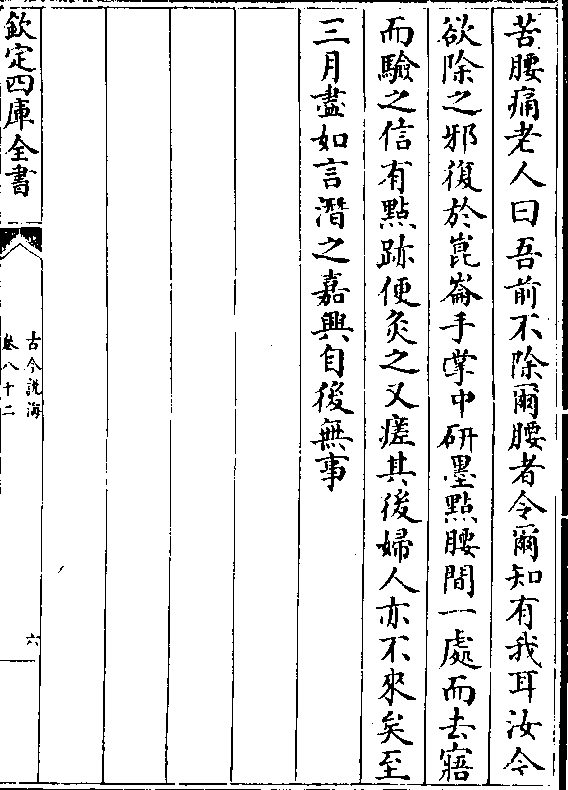 苦腰痛老人曰吾前不除爾腰者令爾知有我耳汝今
欲除之邪復於崑崙手掌中研墨點腰間一處而去寤
而驗之信有點跡便灸之又瘥其後婦人亦不來矣至
三月盡如言潛之嘉興自後無事
欽定四庫全書
古今説海
卷八十二
六